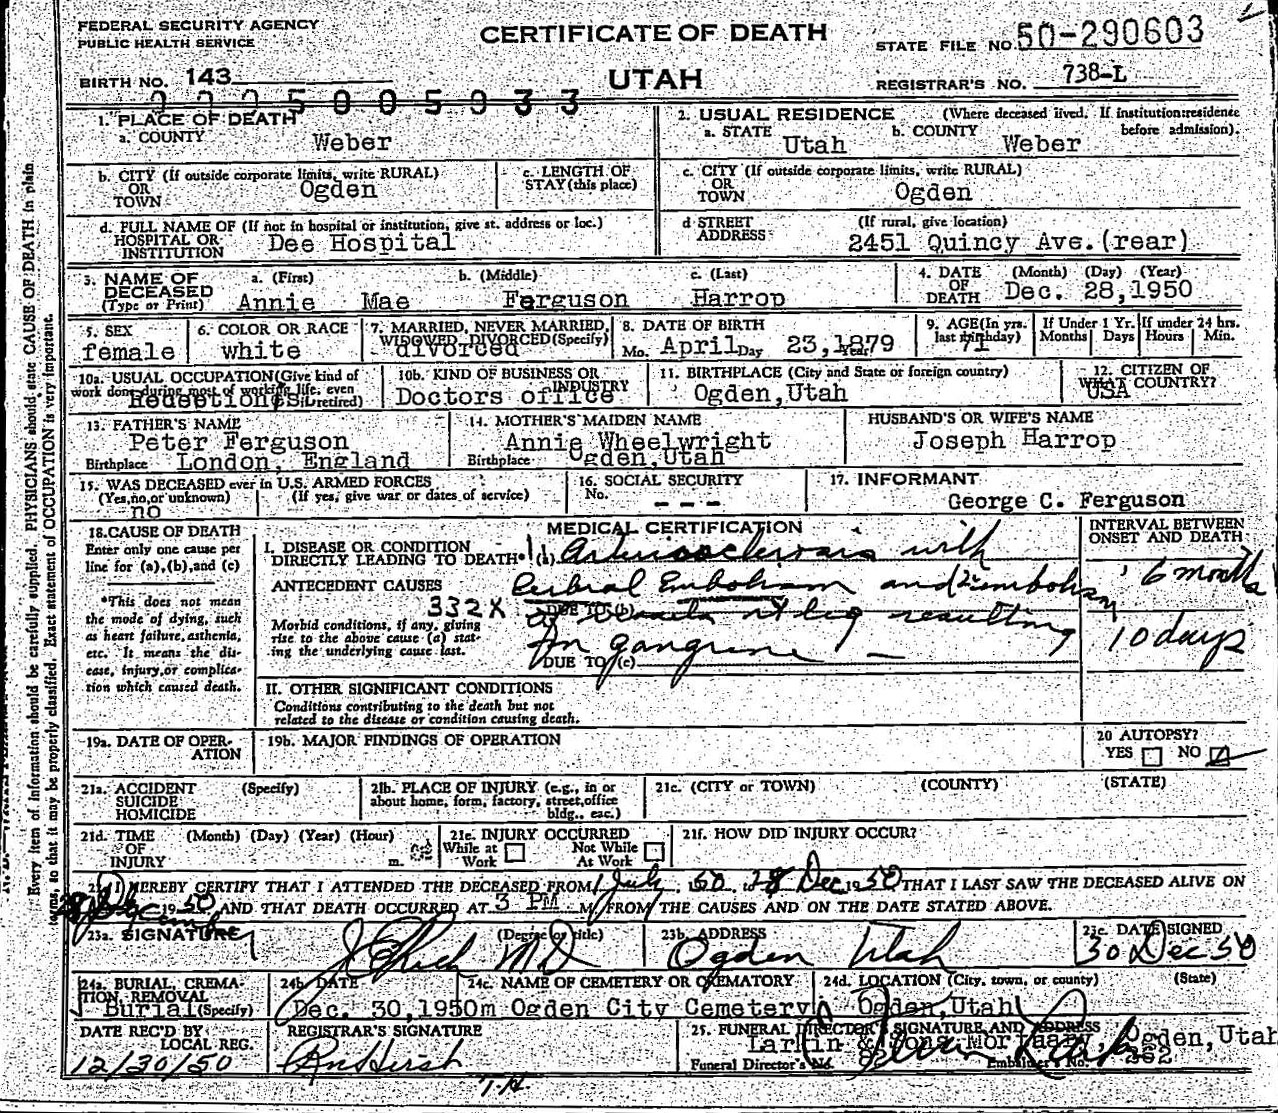 FEDERAL SECURITY AGENCY
PUBLIC HEALTH SERVICE
CERTIFICATE OF DEATH
STATE FILE NO. 50-290603
BIRTH NO. 143
UTAH
REGISTRAR'S NO. 738-L
1. PLACE OF DEATH
a. COUNTY Weber
2. USUAL RESIDENCE (Where deceased lived. If institution: residence before admission).
a. STATE Utah b. COUNTY Weber
b. CITY (If outside corporate limits, write RURAL)
OR TOWN Ogden
c. LENGTH OF STAY (this place)
c. CITY (If outside corporate limits, write RURAL)
OR TOWN Ogden
d. FULL NAME OF (If not in hospital or institution, give st. address or loc.)
HOSPITAL OR INSTITUTION Dee Hospital
d STREET ADDRESS (If rural, give location)
2451 Quincy Ave.(rear)
3. NAME OF DECEASED (Type or Print)
a. (First) b. (Middle) c. (Last)
Annie Mae Ferguson Harrop
4. DATE OF DEATH (Month) (Day) (Year)
Dec. 28,1950
5. SEX
female
6. COLOR OR RACE
white
7. MARRIED, NEVER MARRIED, WIDOWED, DIVORCED (Specify)
divorced
8. DATE OF BIRTH
Mo. April Day 23, Year 1879
9. AGE (In yrs. last birthday)
71
If Under 1 Yr. Months Days
If under 24 hrs. Hours Min.
10a. USUAL OCCUPATION (Give kind of work done during most of working life, even if retired)
10b. KIND OF BUSINESS OR INDUSTRY
Doctors office
11. BIRTHPLACE (City and State or foreign country)
Ogden,Utah
12. CITIZEN OF WHAT COUNTRY?
USA
13. FATHER'S NAME
Peter Ferguson
Birthplace London, England
14. MOTHER'S MAIDEN NAME
Annie Wheelwright
Birthplace Ogden,Utah
HUSBAND'S OR WIFE'S NAME
Joseph Harrop
15. WAS DECEASED ever in U.S. ARMED FORCES
(Yes,no,or unknown) (If yes, give war or dates of service)
no
16. SOCIAL SECURITY No.
- - -
17. INFORMANT
George C. Ferguson
18. CAUSE OF DEATH
Enter only one cause per line for (a),(b),and (c)
*This does not mean the mode of dying, such as heart failure, asthenia, etc. It means the disease, injury, or complication which caused death.
MEDICAL CERTIFICATION
INTERVAL BETWEEN ONSET AND DEATH
I. DISEASE OR CONDITION DIRECTLY LEADING TO DEATH* (a) Arteriosclerosis with
ANTECEDENT CAUSES Cerbral Embolism and embolism
6 months
332X
DUE TO (b) rt leg resulting
Morbid conditions, if any, giving rise to the above cause (a) stating the underlying cause last.
DUE TO (c) in gangrene -
10 days
II. OTHER SIGNIFICANT CONDITIONS
Conditions contributing to the death but not related to the disease or condition causing death.
19a. DATE OF OPERATION
19b. MAJOR FINDINGS OF OPERATION
20 AUTOPSY?
YES NO
21a. ACCIDENT SUICIDE HOMICIDE (Specify)
21b. PLACE OF INJURY (e.g., in or about home, form, factory, street, office bldg., esc.)
21c. (CITY or TOWN) (COUNTY) (STATE)
21d. TIME OF INJURY (Month) (Day) (Year) (Hour) m.
21e. INJURY OCCURRED
While at Work Not While At Work
21f. HOW DID INJURY OCCUR?
I HEREBY CERTIFY THAT I ATTENDED THE DECEASED FROM 1 July, 50 28 Dec 1950 THAT I LAST SAW THE DECEASED ALIVE ON
1950 AND THAT DEATH OCCURRED AT 3 PM M. FROM THE CAUSES AND ON THE DATE STATED ABOVE.
23a. SIGNATURE (Degree or title)
MD
23b. ADDRESS
Ogden Utah
23c. DATE SIGNED
30 Dec 50
24a. BURIAL, CREMATION REMOVAL (Specify)
Burial
24b. DATE
Dec. 30,1950m
24c. NAME OF CEMETERY OR CREMATORY
Ogden City Cemetery
24d. LOCATION (City, town, or county) (State)
Ogden,Utah
DATE REC'D BY LOCAL REG.
12/30/50
REGISTRAR'S SIGNATURE
25. FUNERAL DIRECTOR'S SIGNATURE AND ADDRESS
Larkin & Sons Mortuary, Ogden, Utah
Funeral Director's No.
Embalmer's No.
Every item of information should be carefully supplied. PHYSICIANS should state CAUSE OF DEATH in plain
terms, so that it may be properly classified. Exact statement of OCCUPATION is very important.